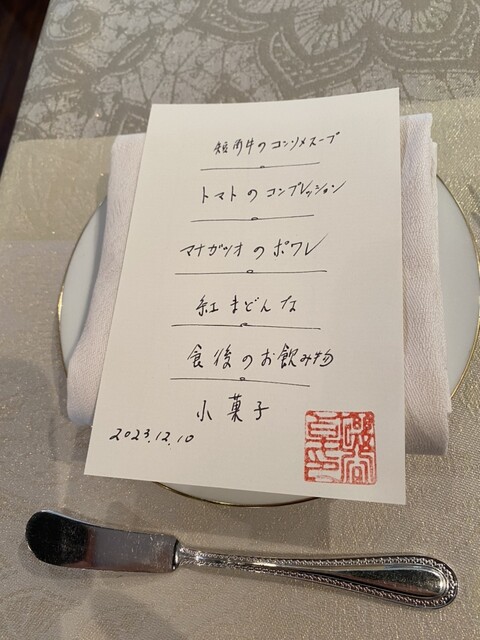 短角牛のコンソメスープ
トマトのコンプレッション
マナガツオのポワレ
紅まどんな
食後のお飲み物
小菓子
2023.12.10